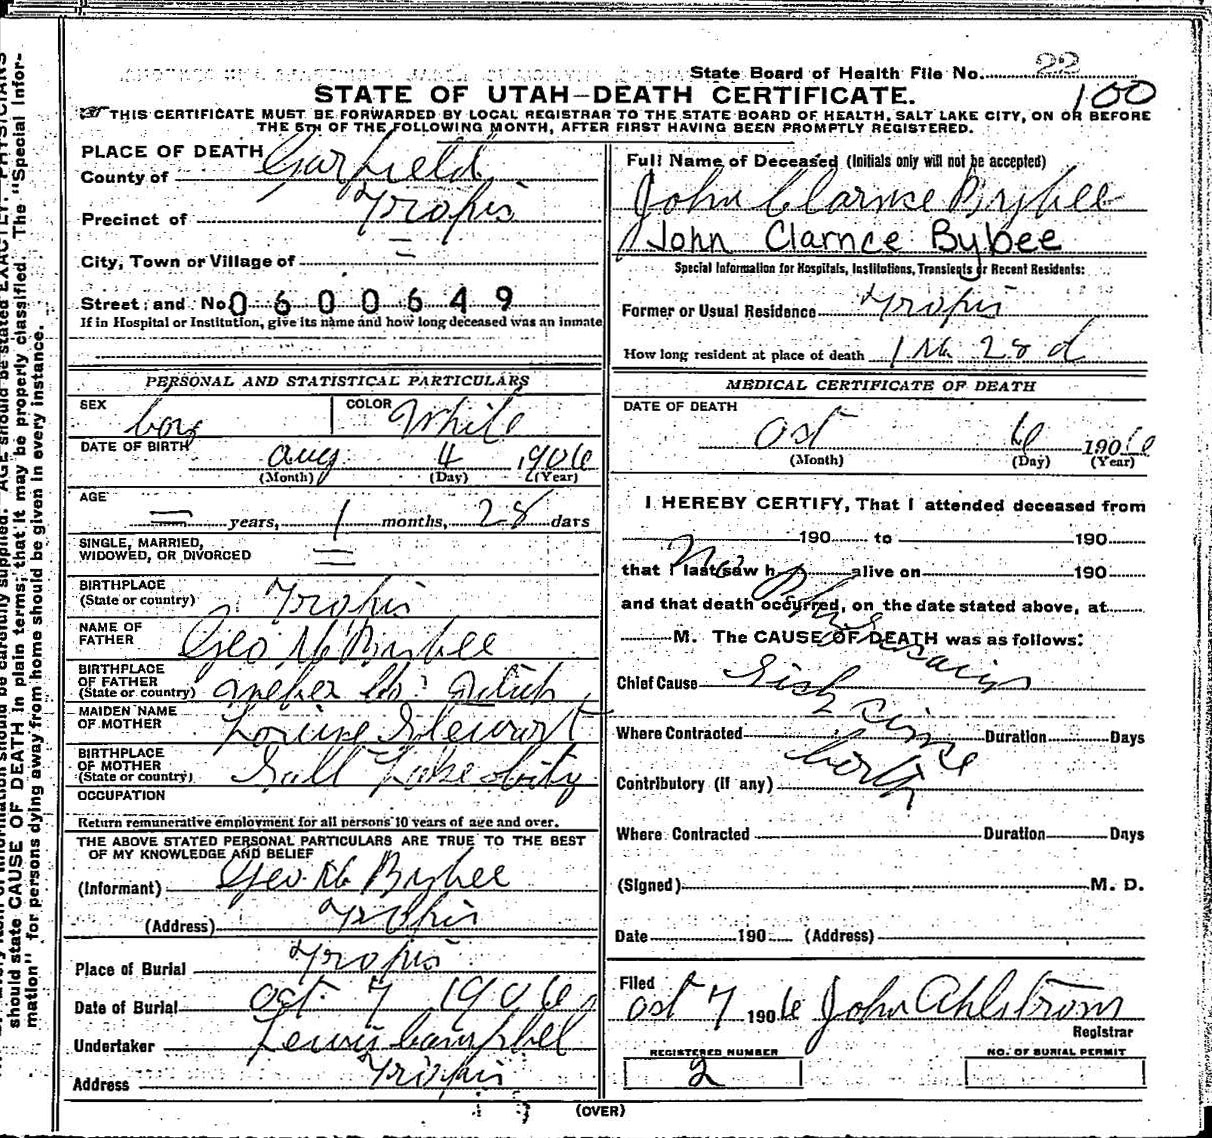 State Board of Health File No. 22
100
STATE OF UTAH—DEATH CERTIFICATE.
THIS CERTIFICATE MUST BE FORWARDED BY LOCAL REGISTRAR TO THE STATE BOARD OF HEALTH, SALT LAKE CITY, ON OR BEFORE
THE 5TH OF THE FOLLOWING MONTH, AFTER FIRST HAVING BEEN PROMPTLY REGISTERED.
PLACE OF DEATH
County of Garfield
Precinct of Tropic
City, Town or Village of =
Street and No. 0600649
If in Hospital or Institution, give its name and how long deceased was an inmate
Full Name of Deceased (Initials only will not be accepted)
John Clarnce Bybee
John Clarnce Bybee
Special Information for Hospitals, Institutions, Transients or Recent Residents:
Former or Usual Residence Tropic
How long resident at place of death 1 Mo 28 d
PERSONAL AND STATISTICAL PARTICULARS
SEX boy
COLOR White
DATE OF BIRTH Aug 4 1906
(Month) (Day) (Year)
AGE
= years, 1 months, 28 days
SINGLE, MARRIED,
WIDOWED, OR DIVORCED =
BIRTHPLACE
(State or country) Tropic
NAME OF
FATHER Geo M Bybee
BIRTHPLACE
OF FATHER
(State or country) Weber Co. Utah
MAIDEN NAME
OF MOTHER Louise Stewart
BIRTHPLACE
OF MOTHER
(State or country) Salt Lake City
OCCUPATION
Return remunerative employment for all persons 10 years of age and over.
THE ABOVE STATED PERSONAL PARTICULARS ARE TRUE TO THE BEST
OF MY KNOWLEDGE AND BELIEF
(Informant) Geo M Bybee
(Address) Tropic
Place of Burial Tropic
Date of Burial Oct. 7 1906
Undertaker Lewis Campbel
Address Tropic
MEDICAL CERTIFICATE OF DEATH
DATE OF DEATH
Oct 6 1906
(Month) (Day) (Year)
I HEREBY CERTIFY, That I attended deceased from
190 to 190
that I last saw h alive on 190
and that death occurred, on the date stated above, at
M. The CAUSE OF DEATH was as follows:
No Phisicain
Chief Cause Sick since
birth
Where Contracted Duration Days
Contributory (if any)
Where Contracted Duration Days
(Signed) M. D.
Date 190 (Address)
Filed
Oct 7 1906 John Ahlstrom
Registrar
REGISTERED NUMBER
2
NO. OF BURIAL PERMIT
(OVER)
should state CAUSE OF DEATH in plain terms, that it may be properly classified. The "Special Infor-
mation" for persons dying away from home should be given in every instance.